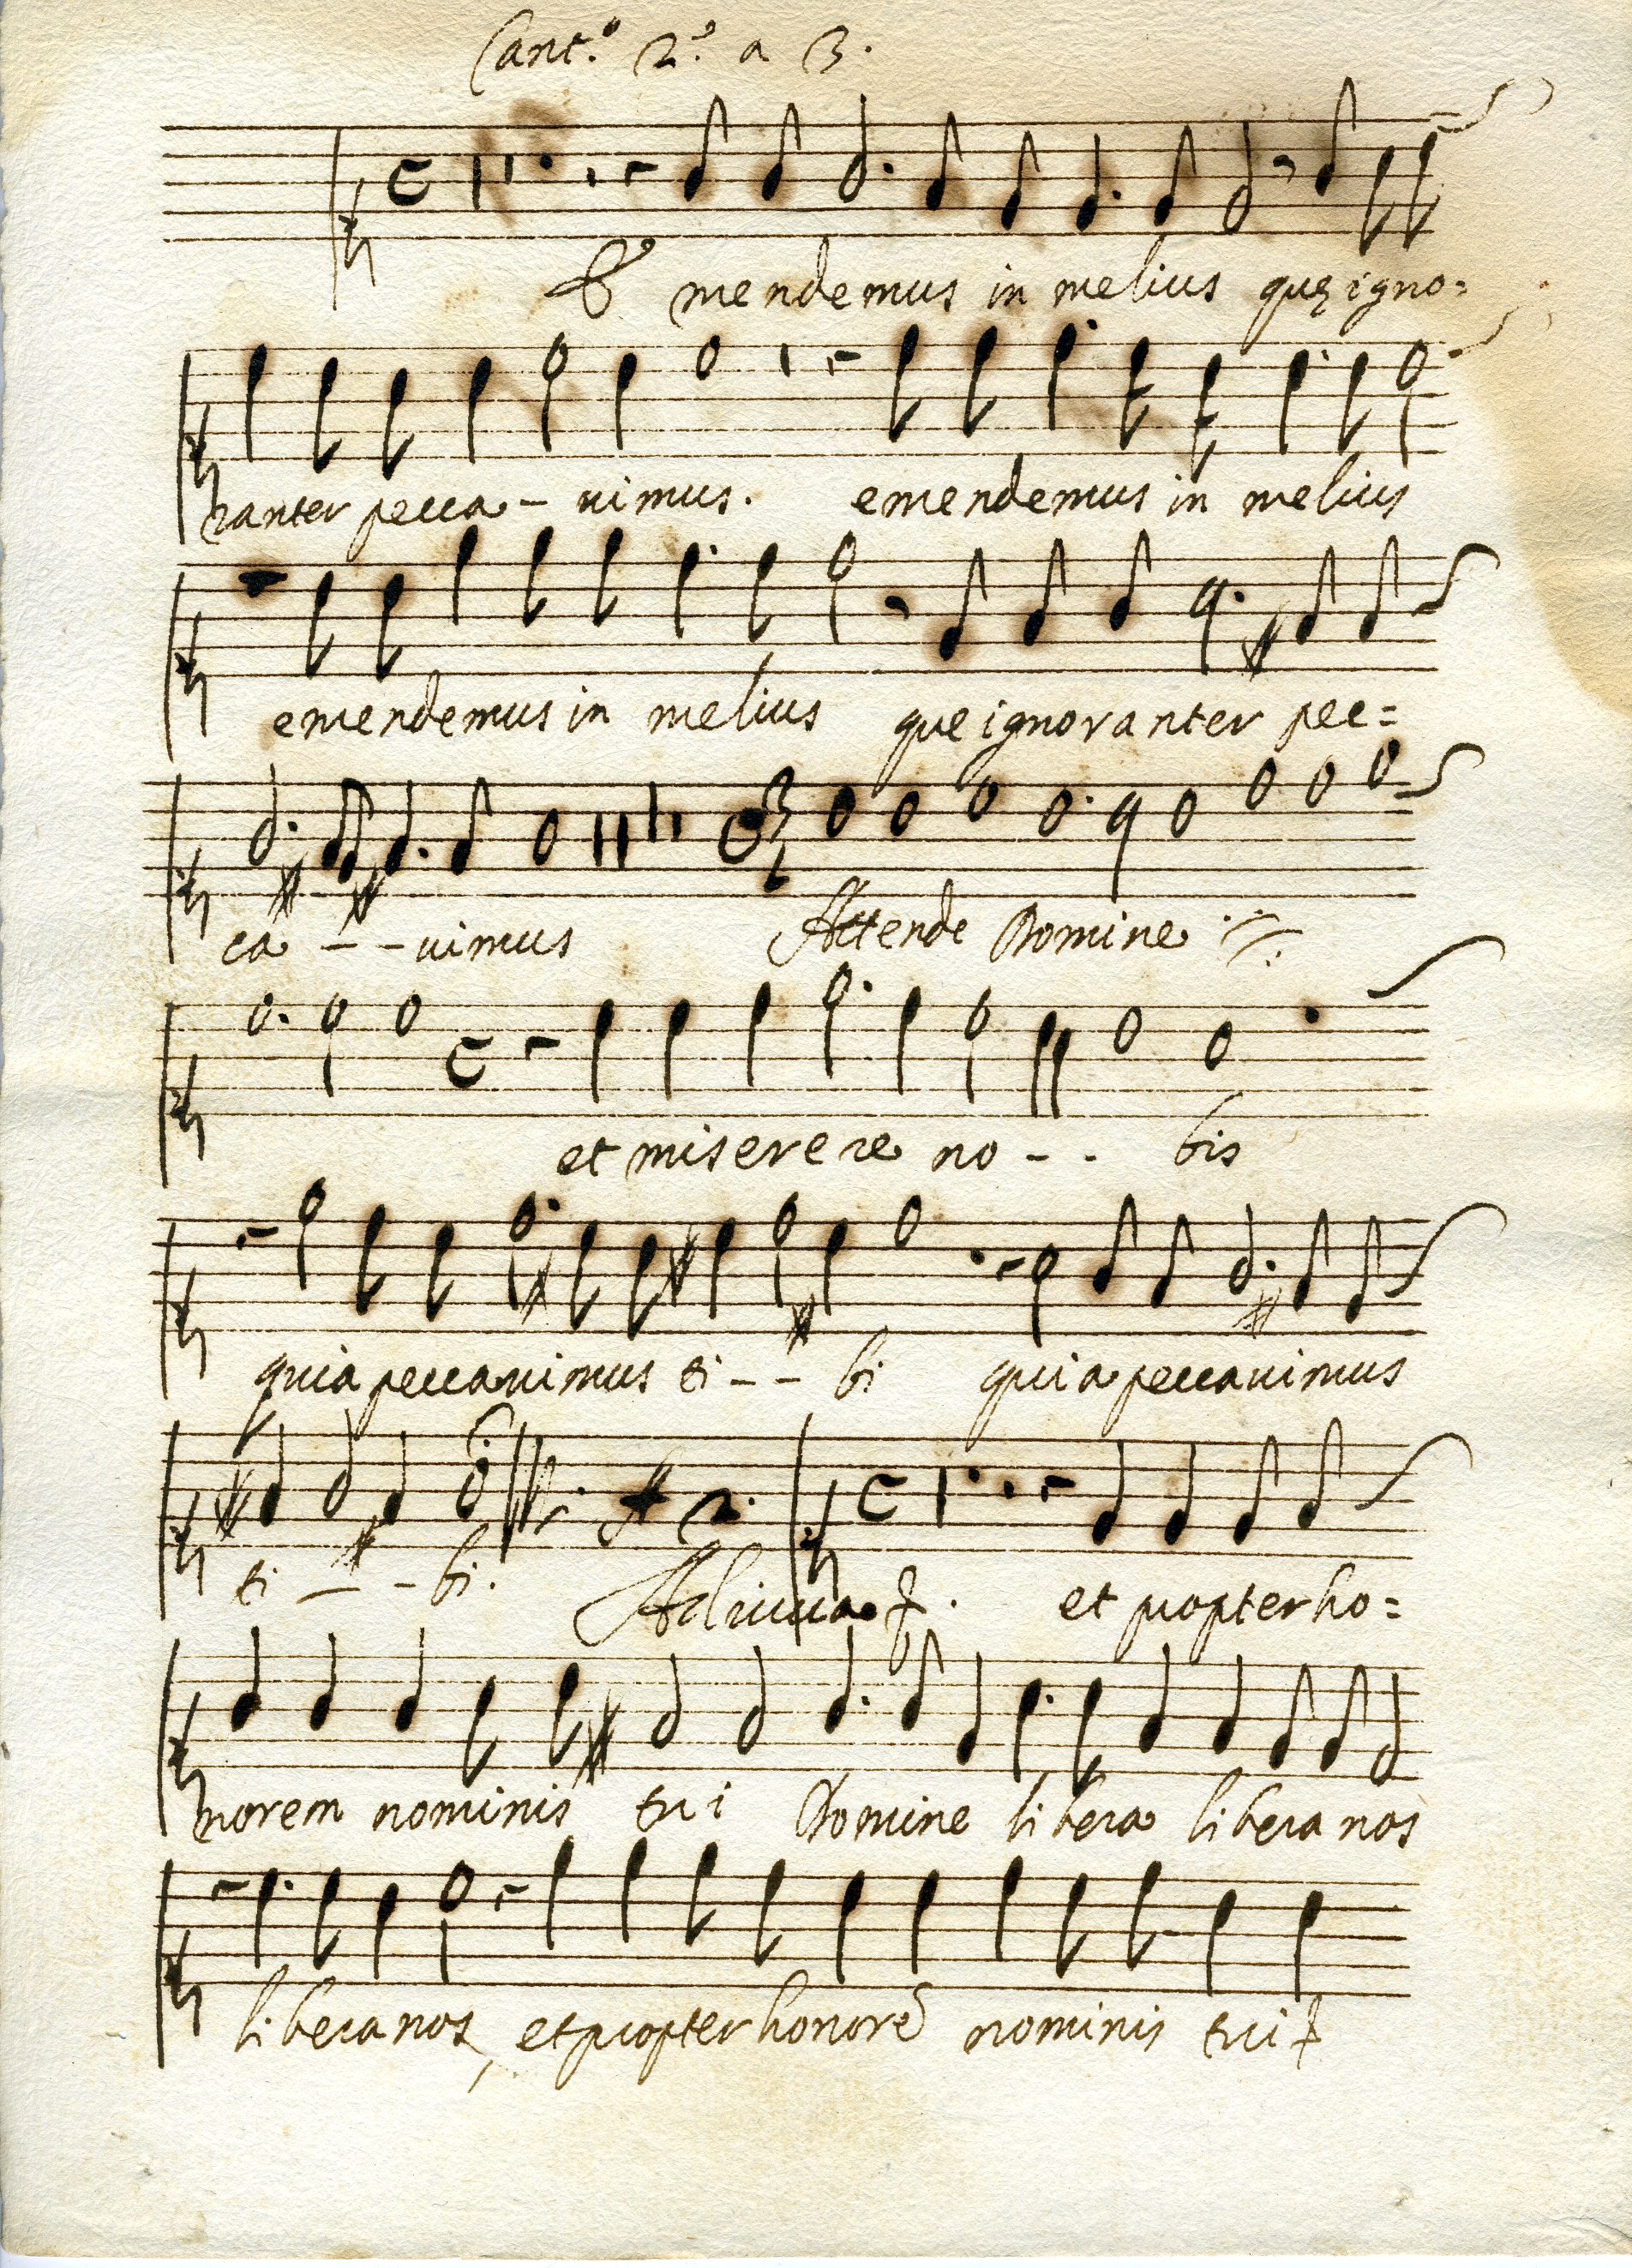 Cant.º 2.º a 3.
E mendemus in melius quę igno=
ranter pecca - uimus. emendemus in melius
emendemus in melius que ignoranter pec=
ca - - uimus Attende Domine
et miserere no - - bis
quia peccauimus ti - - bi quia peccauimus
ti - - bi. Adiuua et propter ho=
norem nominis tui Domine libera libera nos
libera nos, et propter honorē nominis tui